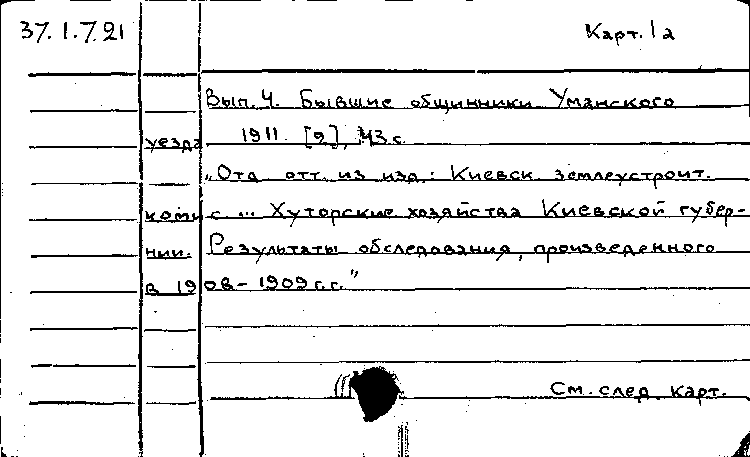 37.1.7.21 Карт. 1а
Вып. 4. Бывшие общинники Уманского
уезда 1911. [2], 43 с.
„Отд. отт. из изд.: Киевск. землеустроит.
комис. ... Хуторские хозяйства Киевской губер-
нии. Результаты обследования, произведенного
в 1908-1909 г.г."
См. след. карт.